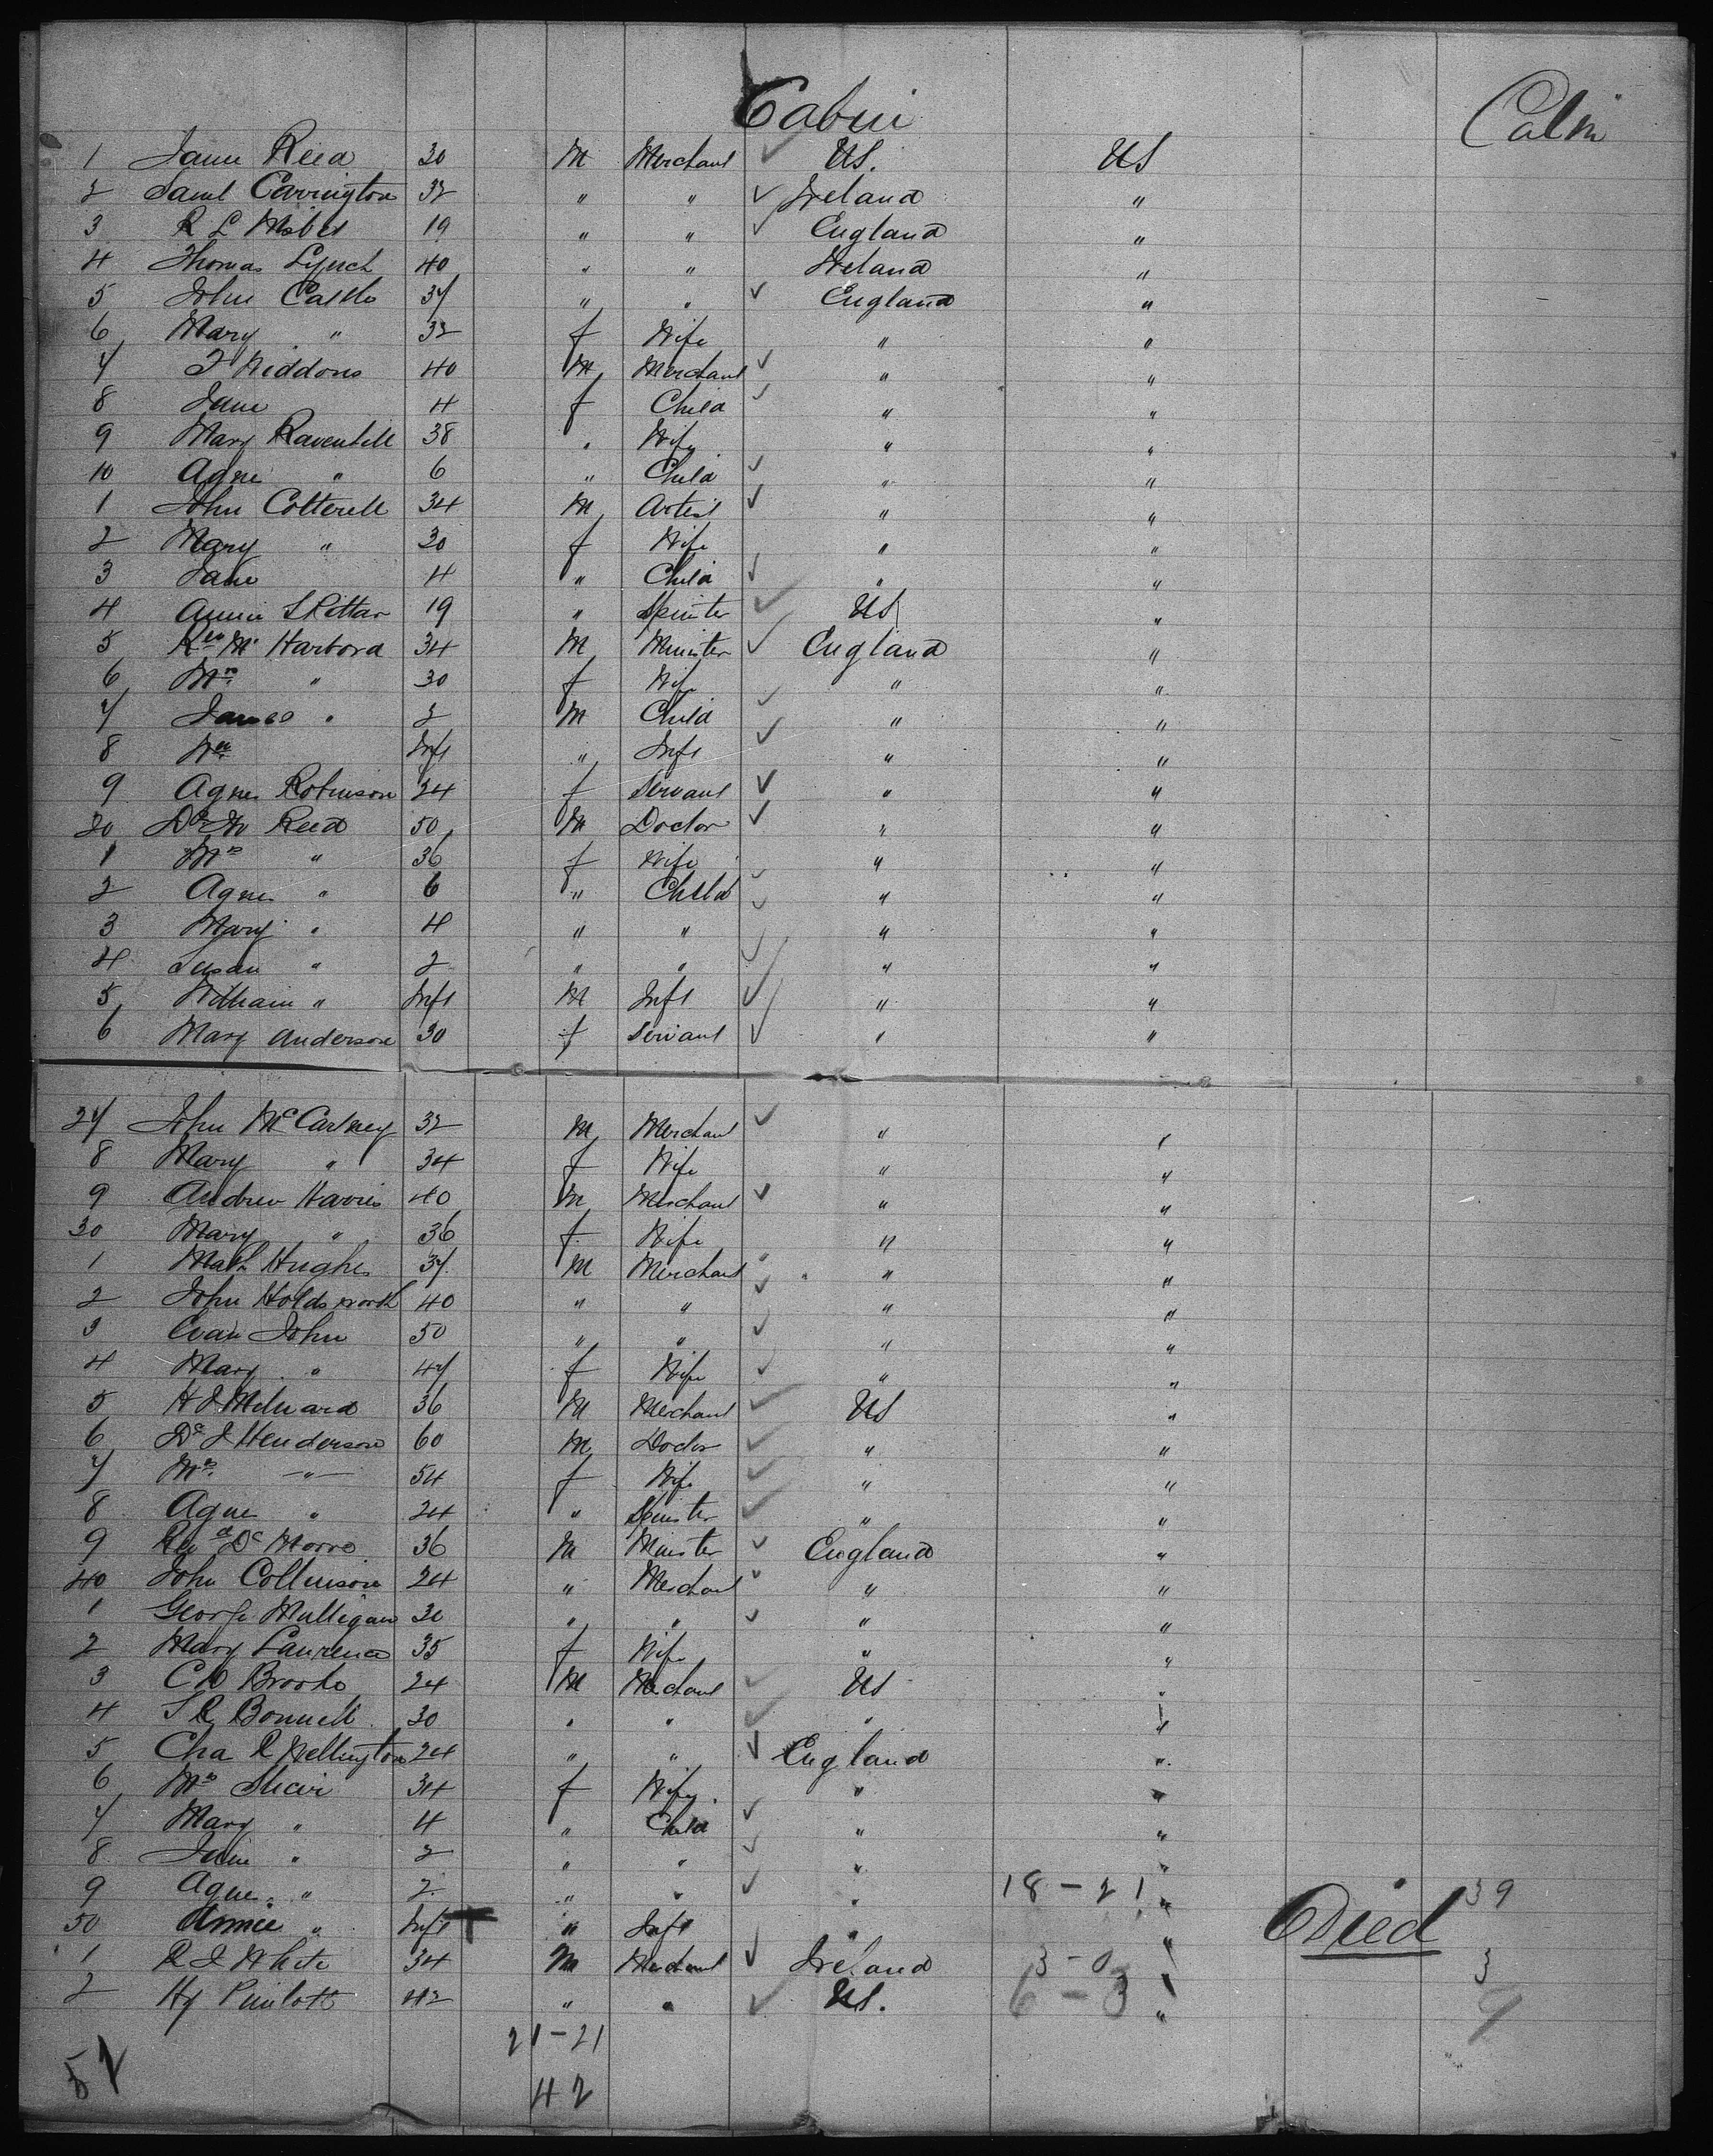 Cabin
Cabin
1 Jane Reed 30 M Merchant US. US
2 Saml Carrington 32 " " Ireland "
3 R L 19 " " England "
4 Thomas Lynch 40 " " Ireland "
5 John Castle 37 " " England "
6 Mary " 32 f Wife " "
7 T Widdons 40 M Merchant " "
8 Jane 4 f Child " "
9 Mary Ravenhill 38 " Wife " "
10 Agnes " 6 " Child " "
1 John Cotterell 34 M Artist " "
2 Mary " 30 f Wife " "
3 Jane 4 " Child " "
4 Annie 19 " Spinster US "
5 Revd Mr Harbord 34 M Minister England "
6 Mrs " 30 f Wife " "
7 James " 2 M Child " "
8 Wm Inft " Inft " "
9 Agnes Robinson 24 f Servant " "
20 Dr W Reed 50 M Doctor " "
1 Mrs " 36 f Wife " "
2 Agnes " 6 " Child " "
3 Mary " 4 " " " "
4 Susan " 2 " " " "
5 William " Inft M Inft " "
6 Mary Anderson 30 f Servant " "
27 John McCartney 32 M Merchant " "
8 Mary " 34 f Wife " "
9 Andrew Harris 40 M Merchant " "
30 Mary " 36 f Wife " "
1 Math Hughes 37 M Merchant " "
2 John Holdsworth 40 " " " "
3 Evan John 50 " " " "
4 Mary " 47 f Wife " "
5 H J Milward 36 M Merchant US "
6 Dr J Henderson 60 M Doctor " "
7 Mrs " 54 f Wife " "
8 Agnes " 24 " Spinster " "
9 Revd Dr 36 M Minister England "
40 John Collinson 24 " Merchant " "
1 George Mulligan 30 " " " "
2 Mary Laurence 35 f Wife " "
3 C D Brooks 24 M Merchant US "
4 S R Bonnell 30 " " " "
5 Cha R Wellington 24 " " England "
6 Mrs 34 f Wife " "
7 Mary " 4 " Child " "
8 " 2 " " " "
9 Agnes " 2 " " " 18-21 " 39
50 Annie " Inft + " Inft " " Died
1 R J White 34 M Merchant Ireland 3-0 " 3
2 Hy 42 " " US. 6-3 " 9
21-21
52
42